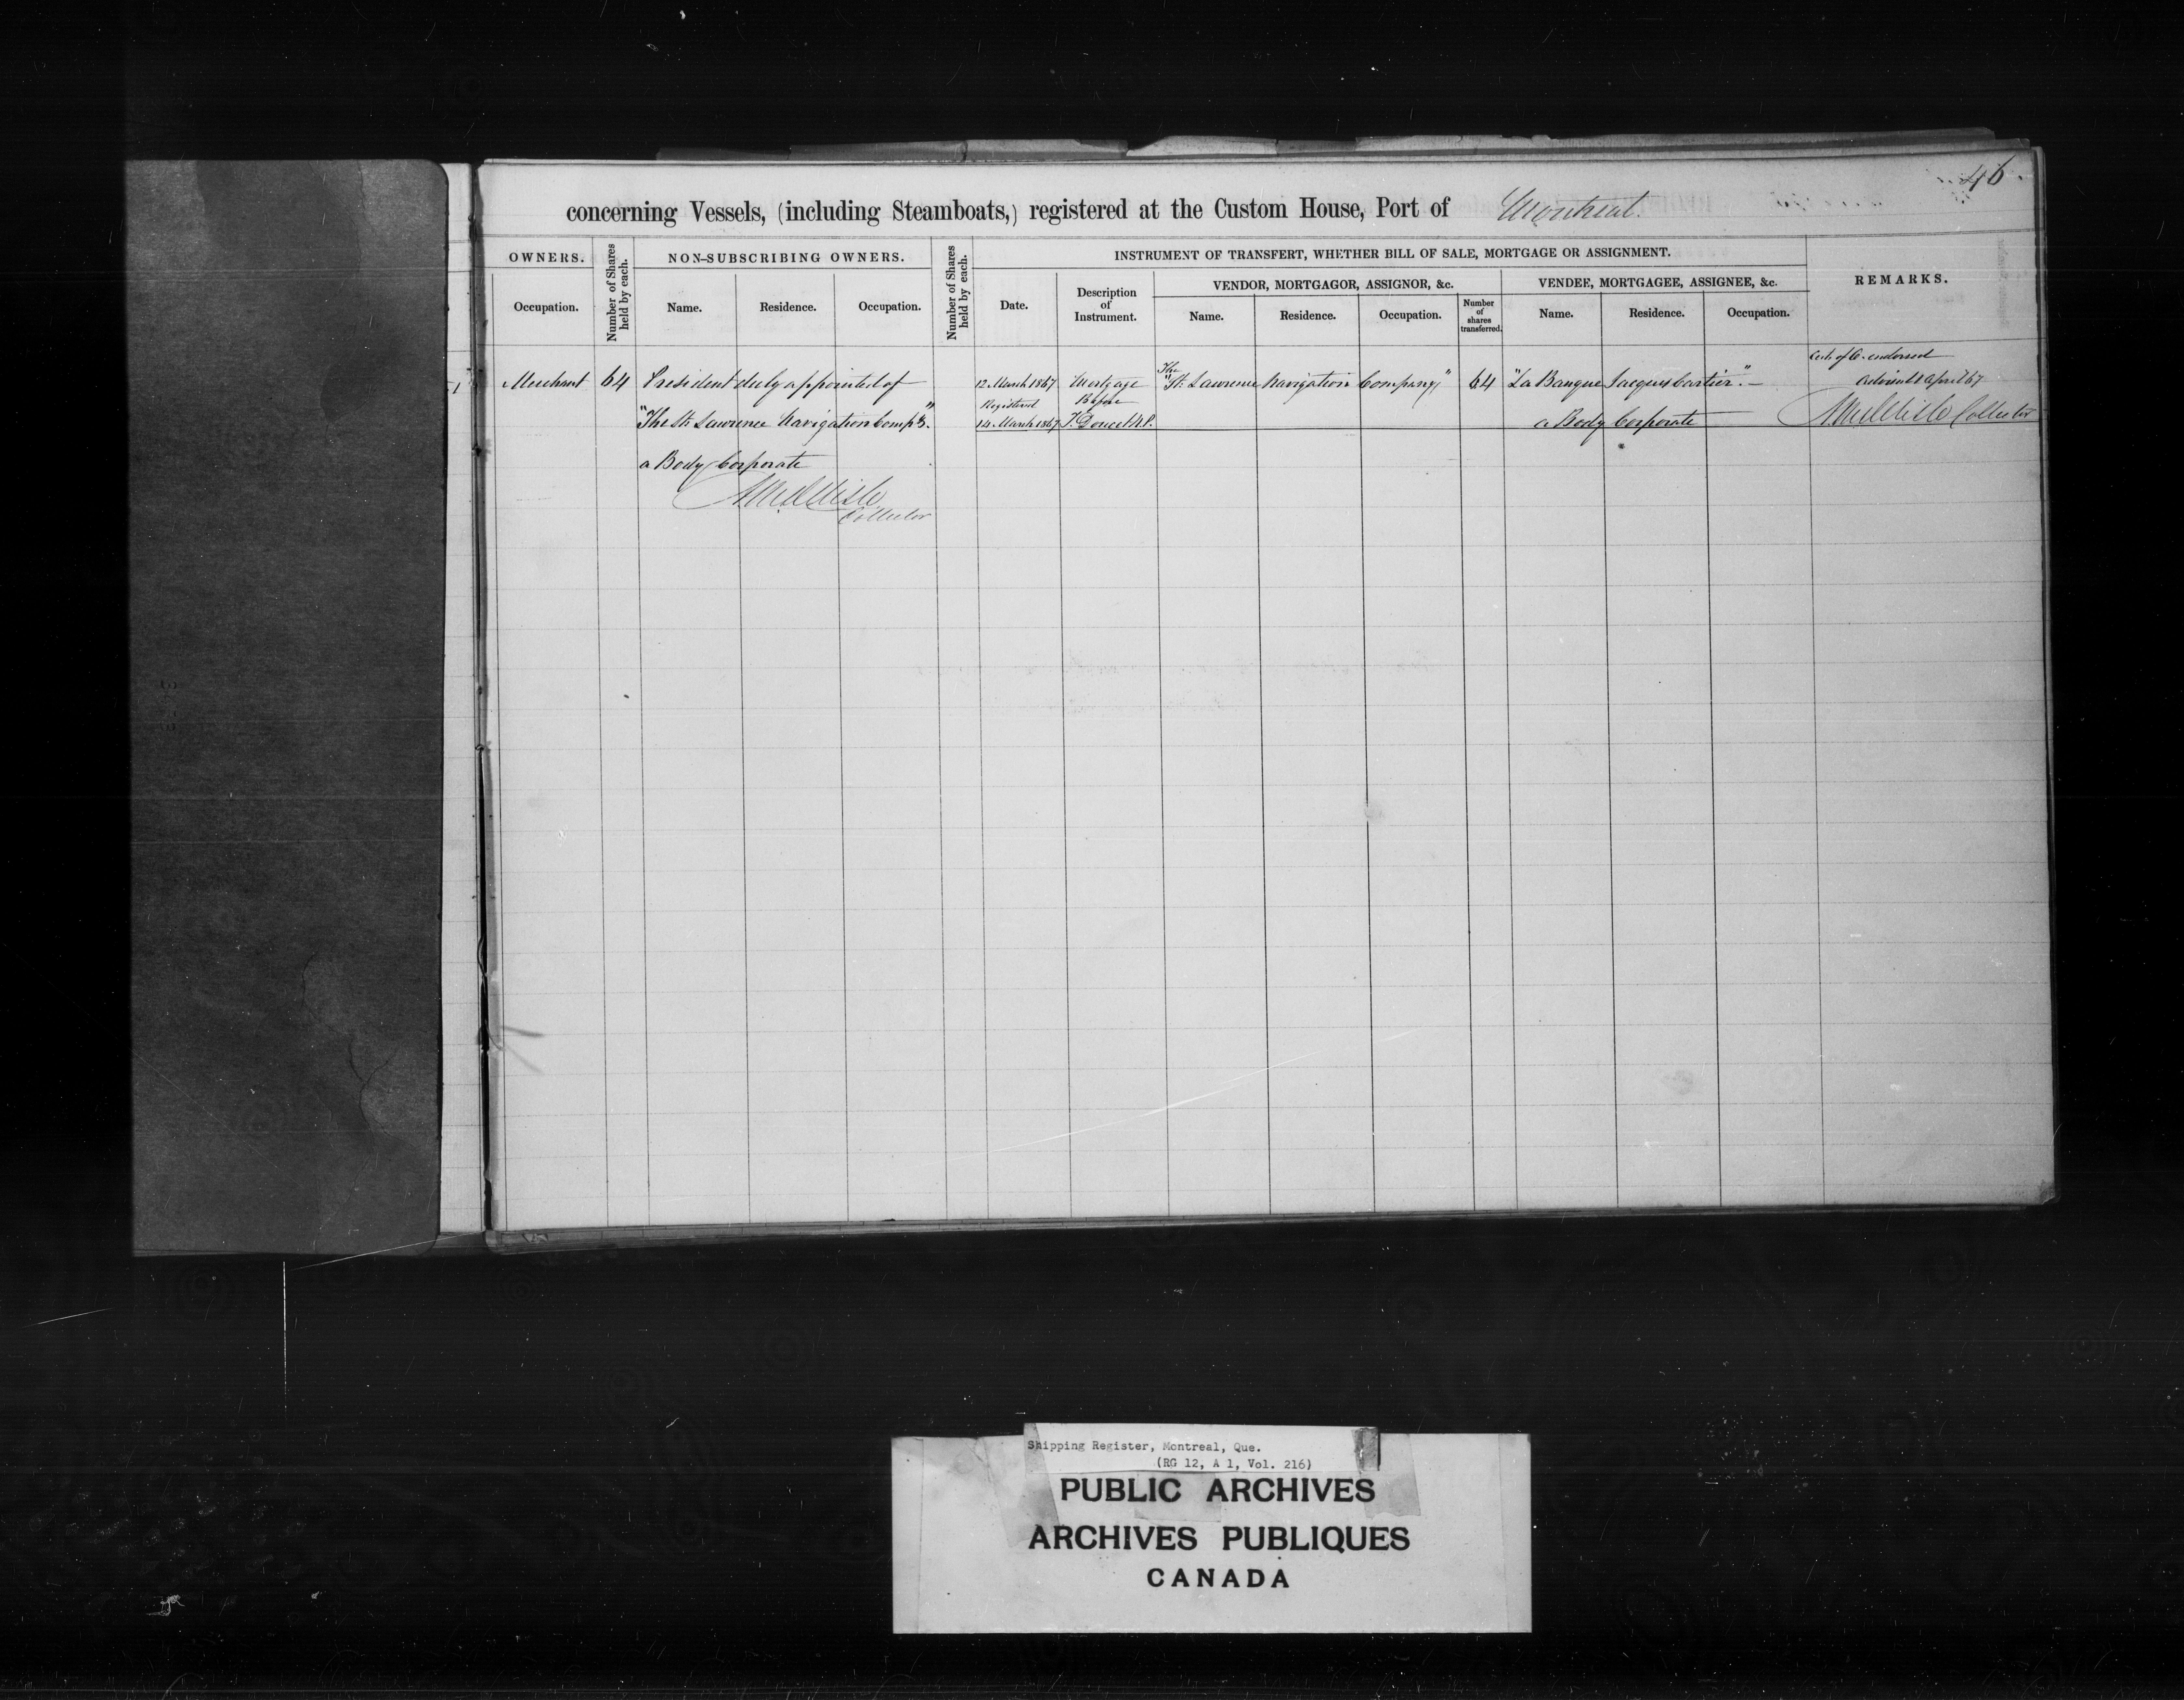 46.
concerning Vessels, (including Steamboats,) registered at the Custom House, Port of Montreal
OWNERS.
Number of Shares held by each.
NON-SUBSCRIBING OWNERS.
Number of Shares held by each.
INSTRUMENT OF TRANSFERT, WHETHER BILL OF SALE, MORTGAGE OR ASSIGNMENT.
REMARKS.
Occupation.
Name.
Residence.
Occupation.
Date.
Description of Instrument.
VENDOR, MORTGAGOR, ASSIGNOR, &c.
VENDEE, MORTGAGEE, ASSIGNEE, &c.
Name.
Residence.
Occupation.
Number of shares transferred.
Name.
Residence.
Occupation.
Merchant
64
President duly appointed of
"The St. Lawrence Navigation Compy."
a Body Corporate
Collector
12 March 1867
Registered
14 March 1867
Mortgage
Before
T. Doucet N.P.
The
"St. Lawrence Navigation Company,"
64
"La Banque Jacques Cartier." –
a Body Corporate
endorsed
April 67
Collector
Shipping Register, Montreal, Que.
(RG 12, A 1, Vol. 216)
PUBLIC ARCHIVES
ARCHIVES PUBLIQUES
CANADA